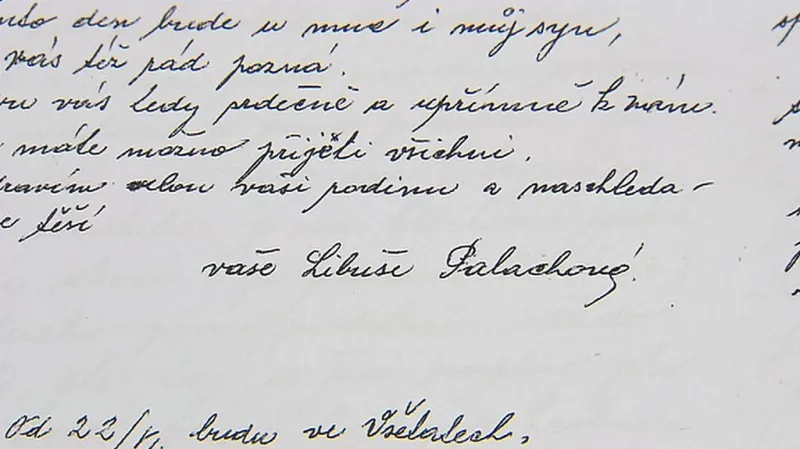 den bude u mne i můj syn,
vás též rád pozná.
vás tedy srdečně a upřímně k nám.
máte možno přijeti všichni.
celou vaši rodinu a naschleda-
e těší
vaše Libuše Palachová.
Od 22/V. budu ve Všetatech,